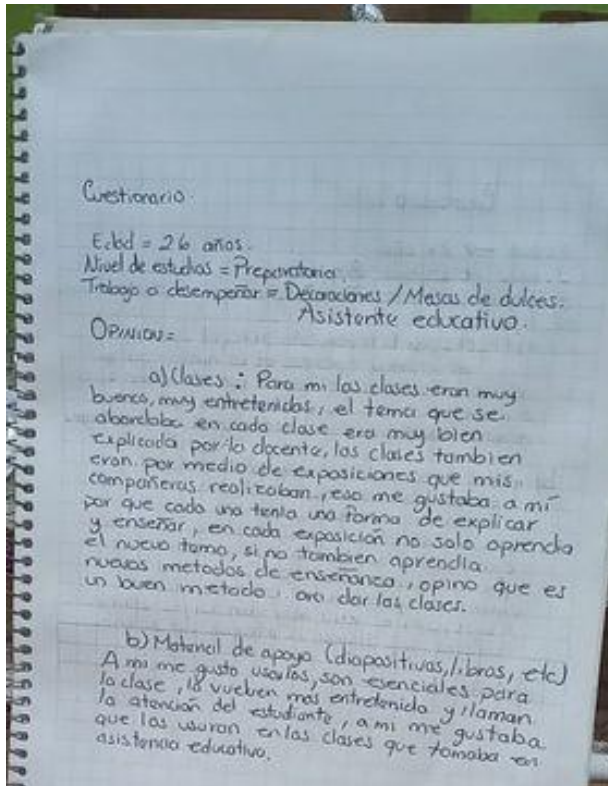 Cuestionario.
Edad = 26 años.
Nivel de estudios = Preparatoria.
Trabajo a desempeñar = Decoraciones / Mesas de dulces.
Asistente educativo.
OPINION =
a) Clases : Para mi las clases eran muy
buenas, muy entretenidas, el tema que se
abordaba en cada clase era muy bien
explicada por la docente, las clases tambien
eran por medio de exposiciones que mis
compañeras realizaban, eso me gustaba a mí
por que cada una tenía una forma de explicar
y enseñar, en cada exposición no solo aprendia
el nuevo tema, si no tambien aprendia
nuevos metodos de enseñanza, opino que es
un buen metodo para dar las clases.
b) Material de apoyo (diapositivas, libros, etc)
A mi me gusto usarlos, son esenciales para
la clase, la vuelven mas entretenida y llaman
la atención del estudiante, a mi me gustaba
que las usaran en las clases que tomaba en
asistencia educativa.